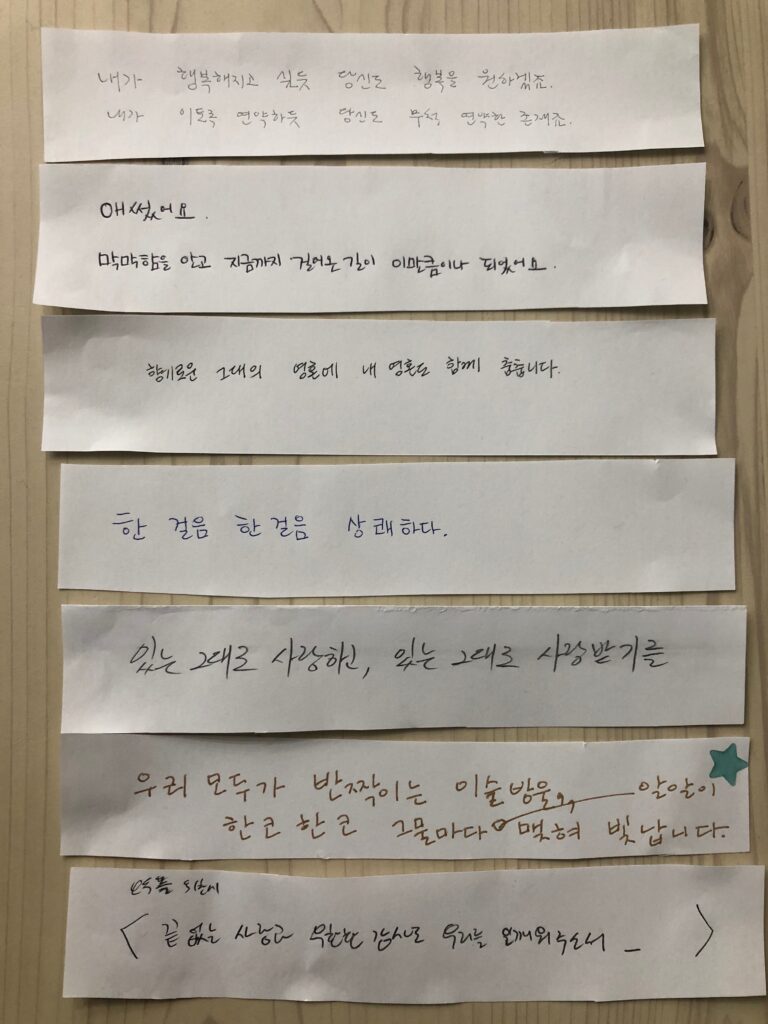 내가 행복해지고 싶듯 당신도 행복을 원하겠죠.
내가 이토록 연약하듯 당신도 무척 연약한 존재죠.
애썼어요.
막막함을 안고 지금까지 걸어온 길이 이만큼이나 되었어요.
향기로운 그대의 영혼에 내 영혼도 함께 춤춥니다.
한 걸음 한 걸음 상쾌하다.
있는 그대로 사랑하고, 있는 그대로 사랑받기를
우리 모두가 반짝이는 이슬방울, 알알이
한코 한코 그물마다 맺혀 빛납니다.
< 끝없는 사랑과 무한한 감사로 우리를 일깨워주소서 _ >